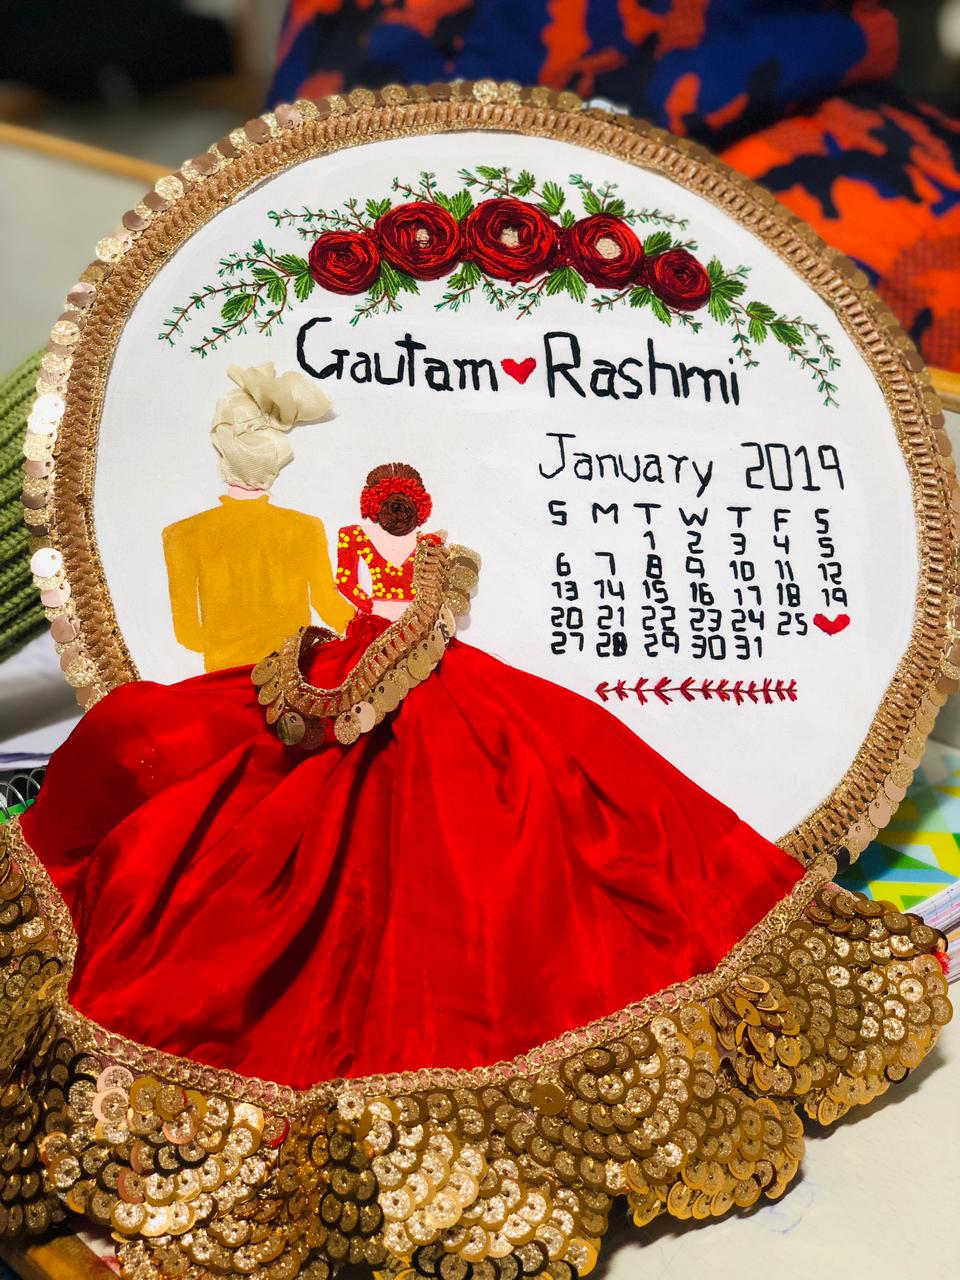 Gautam ❤ Rashmi
January 2019
S M T W T F S
1 2 3 4 5
6 7 8 9 10 11 12
13 14 15 16 17 18 19
20 21 22 23 24 25 ❤
27 28 29 30 31